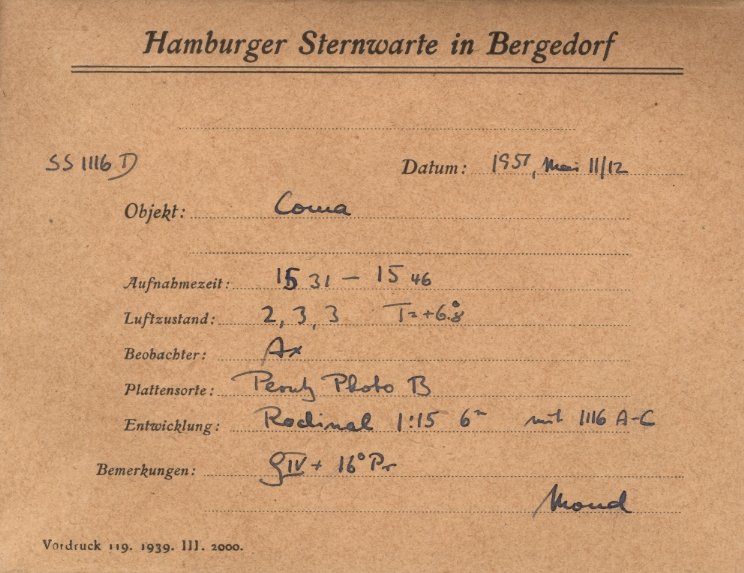 Hamburger Sternwarte in Bergedorf
SS 1116 D Datum: 1951, Mai 11/12
Objekt: Coma
Aufnahmezeit: 15 31 – 15 46
Luftzustand: 2, 3, 3 T = +6.°8
Beobachter: Ax
Plattensorte: Perutz Photo B
Entwicklung: Rodinal 1:15 6ᵐ mit 1116 A-C
Bemerkungen: IV + 16° Pr
Mond
Vordruck 119. 1939. III. 2000.